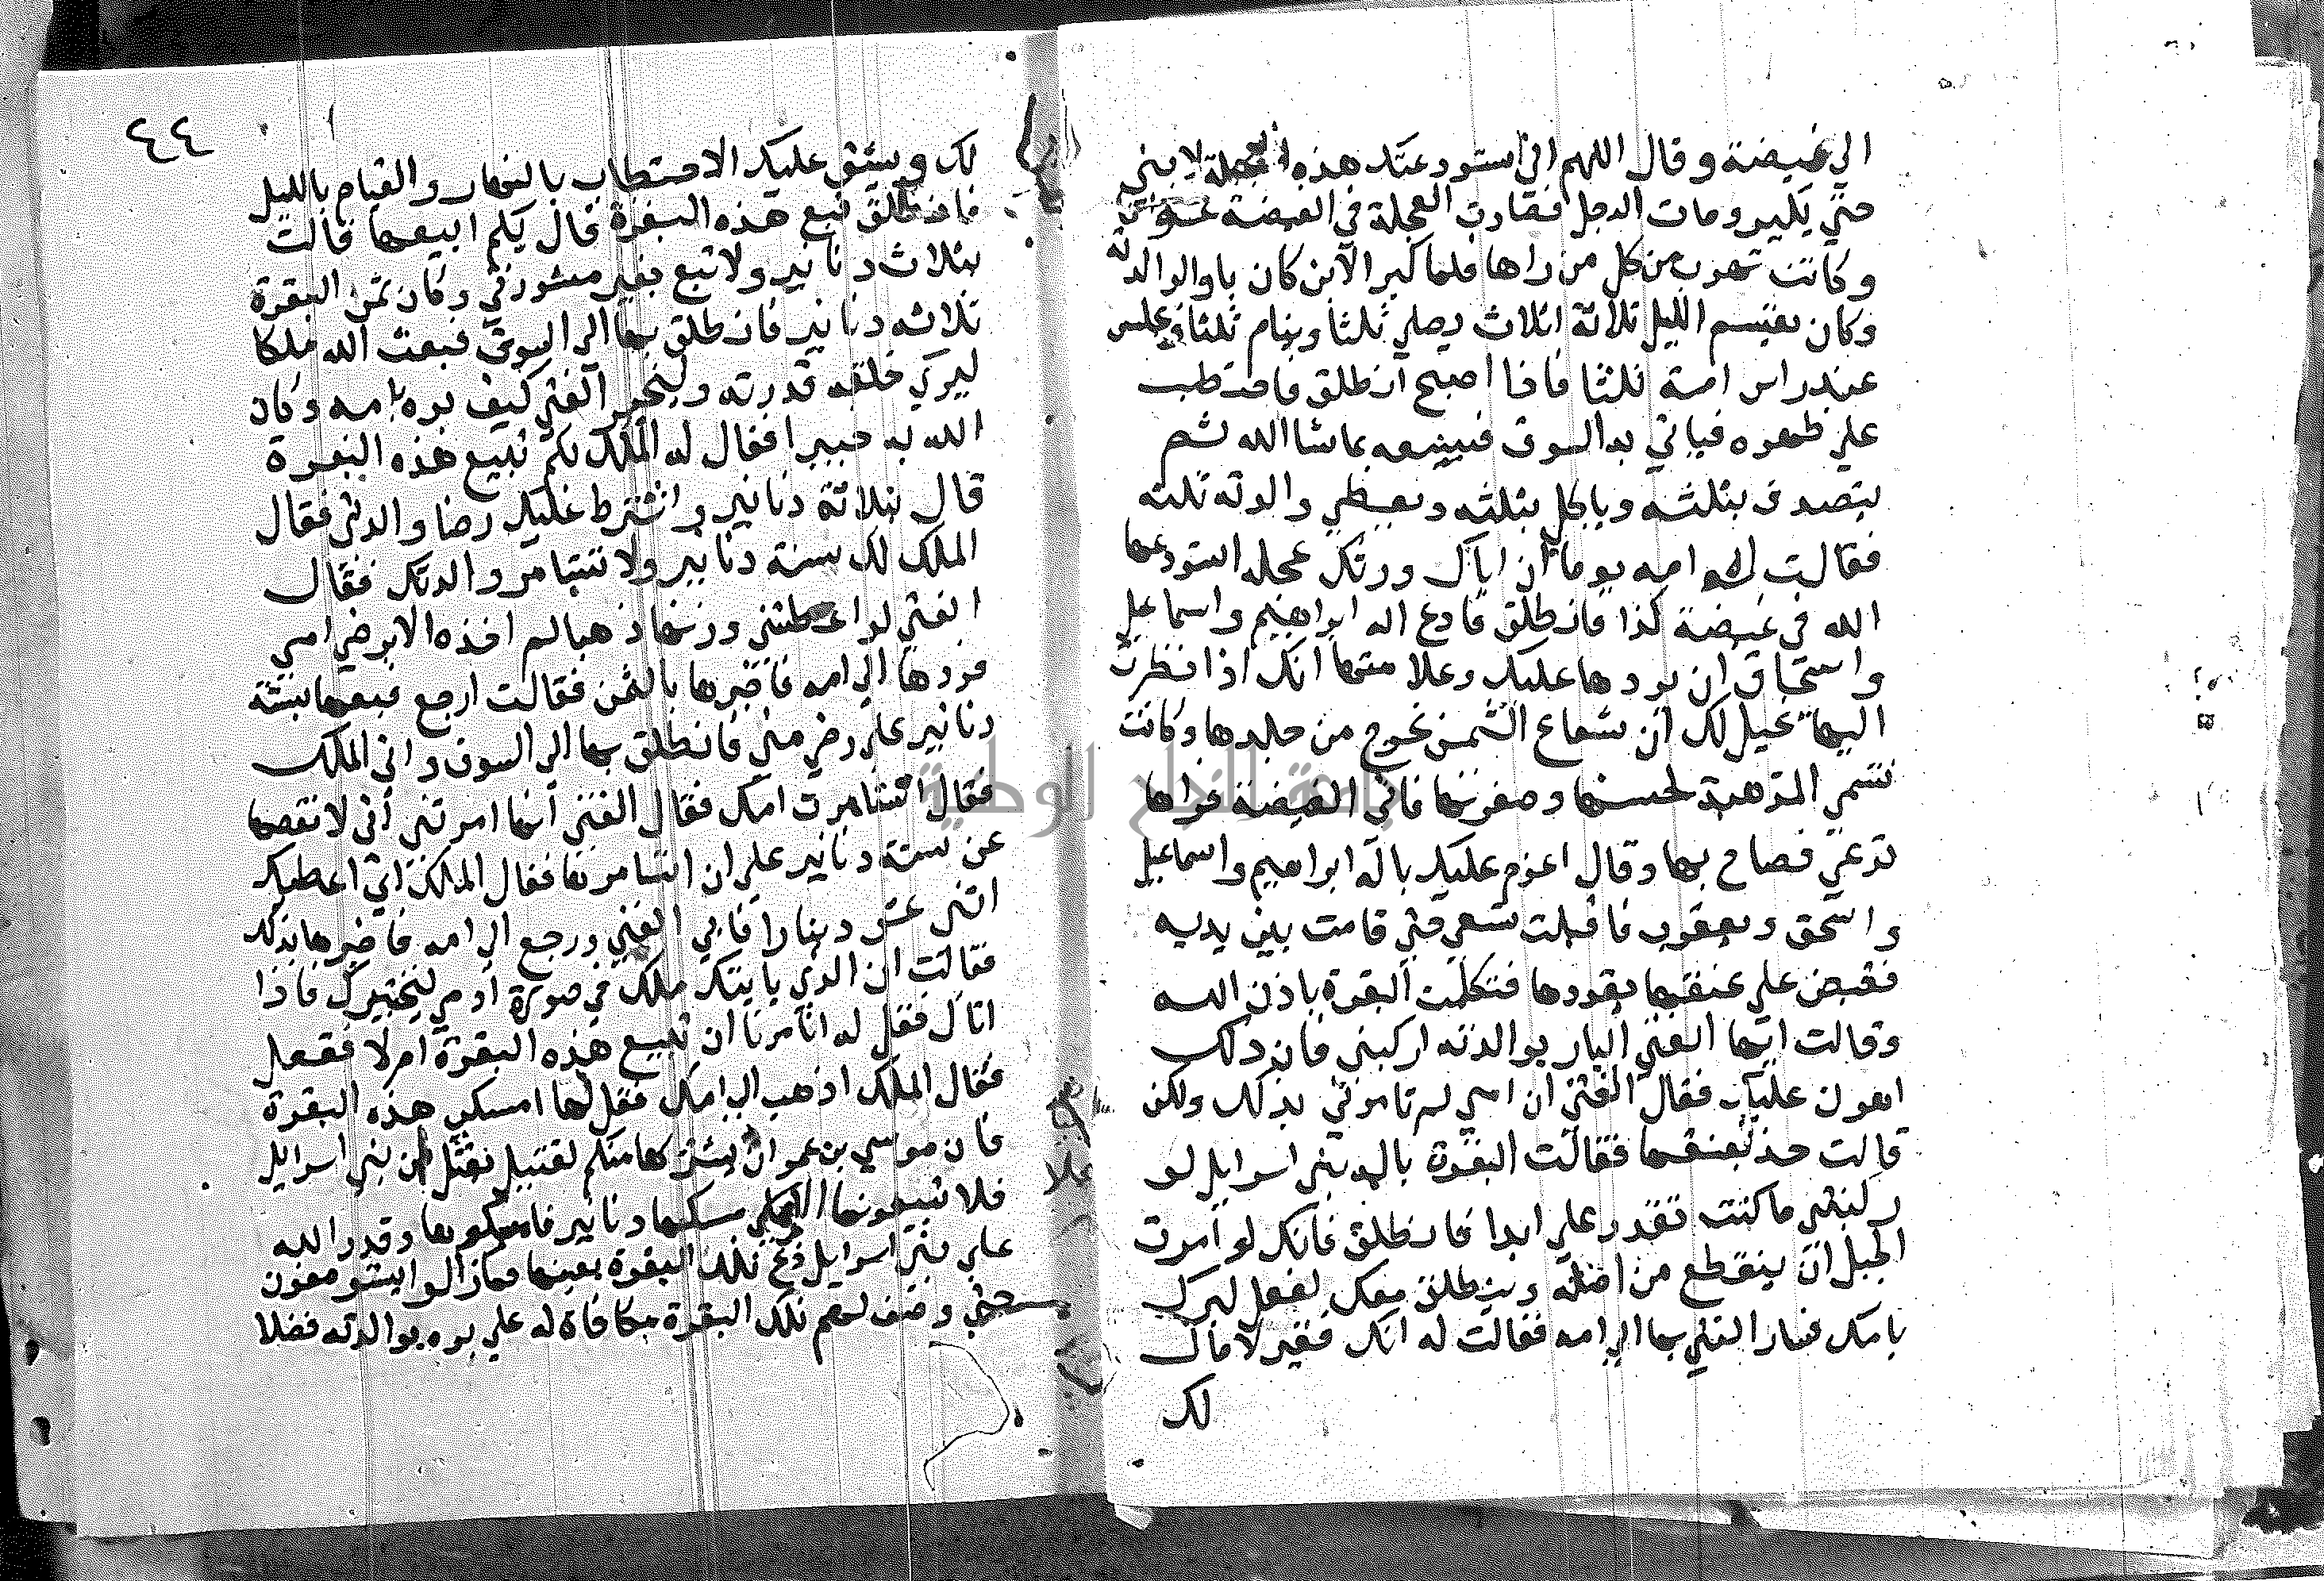 الي غيضة وقال اللهم اني استودعتك هذه العجلة لابني
حتي يكبر ومات الرجل فصارت العجلة في الغيضة
وكانت تهرب من كل من راها فلما كبر الابن كان بارا لوالدته
وكان يقتسم الليل ثلاثة اثلاث يصلي ثلثا وينام ثلثا ويجلس
عند راس امه ثلثا فاذا اصبح انطلق فاحتطب
علي ظهره فياتي به السوق فيبيعه بما شا الله ثم
يتصدق بثلثه وياكل بثلثه ويعطي والدته ثلثه
فقالت له امه يوما ان اباك ورثك عجله استودعها
الله في غيضة كذا فانطلق فادع اله ابراهيم واسماعيل
واسحاق ان يردها عليك وعلامتها انك اذا نظرت
اليها يخيل لك ان شعاع الشمس يخرج من جلدها وكانت
تسمي المذهبة لحسنها وصفرتها فاتي الغيضة فراها
ترعي فصاح بها وقال اعزم عليك باله ابراهيم واسماعيل
واسحق ويعقوب فاقبلت تسعي حتي قامت بين يديه
فقبض علي عنقها يقودها فتكلمت البقرة باذن الله
وقالت ايها الفتي البار بوالدته اركبني فان ذلك
اهون عليك فقال الفتي ان امي لم تامرني بذلك ولكن
قالت خذ بعنقها فقالت البقرة باله بني اسرايل لو
ركبتني ما كنت تقدر علي ابدا فانطلق فانك لو امرت
الجبل ان ينقطع من اصله وينطلق معك لفعل لبرك
بامك فسار الفتي بها الي امه فقالت له انك فقير لا مال
لك
٤٤
لك ويشق عليك الاحتطاب بالنهار والقيام بالليل
فانطلق فبع هذه البقرة قال بكم ابيعها قالت
بثلاث دنانير ولا تبع بغير مشورتي وكان ثمن البقرة
ثلاثه دنانير فانطلق بها الي السوق فبعث الله ملكا
ليري خلقه قدرته وليختبر الفتي كيف بره بامه وكان
الله به خبيرا فقال له الملك بكم تبيع هذه البقرة
قال بثلاثة دنانير واشترط عليك رضا والدتي فقال
الملك لك ستة دنانير ولا تستامر والدتك فقال
الفتي لو اعطيتني وزنها ذهبا لم اخذه الا برضي امي
فردها الي امه فاخبرها بالثمن فقالت ارجع فبعها بستة
دنانير علي رضي مني فانطلق بها الي السوق واتي الملك
فقال استامرت امك فقال الفتي انها امرتني اني لا نقصها
عن ستة دنانير علي ان استامرها فقال الملك اني اعطيك
اثني عشر دينارا فابي الفتي ورجع الي امه فاخبرها بذلك
فقالت ان الذي ياتيك ملك في صورة ادمي ليختبرك فاذا
اتاك فقل له اتامرنا ان نبيع هذه البقرة ام لا ففعل
فقال الملك اذهب الي امك فقل لها امسكي هذه البقرة
فان موسي بن عمران يشتريها منكم لقتيل يقتل من بني اسرايل
فلا تبيعوها الا بملي مسكها دنانير فامسكوها وقدر الله
علي بني اسرايل ذبح تلك البقرة بعينها فمازالوا يستوصفون
حتي وصف لهم تلك البقرة مكافاة له علي بره بوالدته فضلا